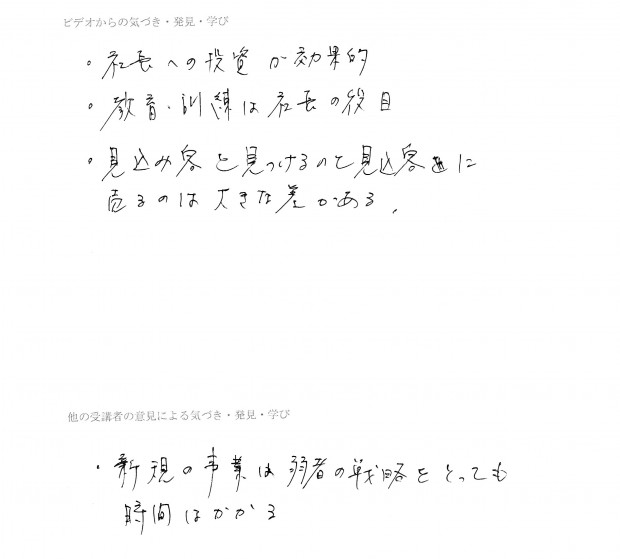 ビデオからの気づき・発見・学び
・社長への投資が効果的
・教育・訓練は社長の役目
・見込み客を見つけるのと見込客に
売るのは大きな差がある。
他の受講者の意見による気づき・発見・学び
・新規の事業は弱者の戦略をとっても
時間はかかる